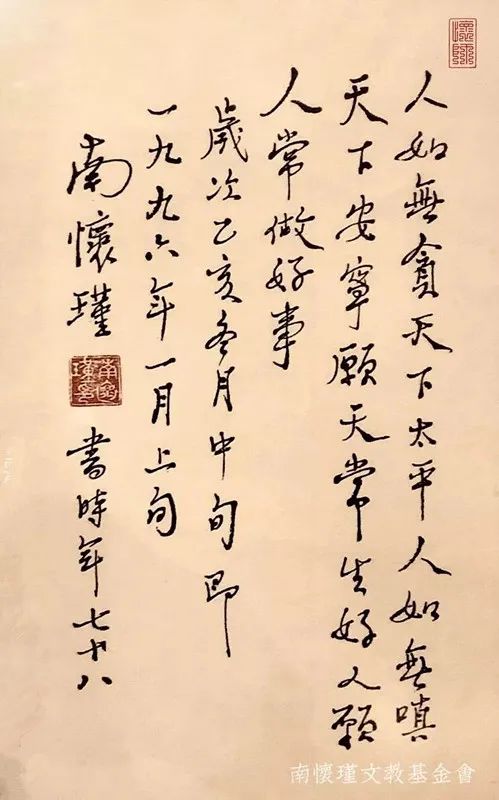 人如無貪天下太平人如無嗔
天下安寧願天常生好人願
人常做好事
歲次乙亥冬月中旬即
一九九六年一月上旬
南懷瑾
書時年七十八
南懷瑾文教基金會